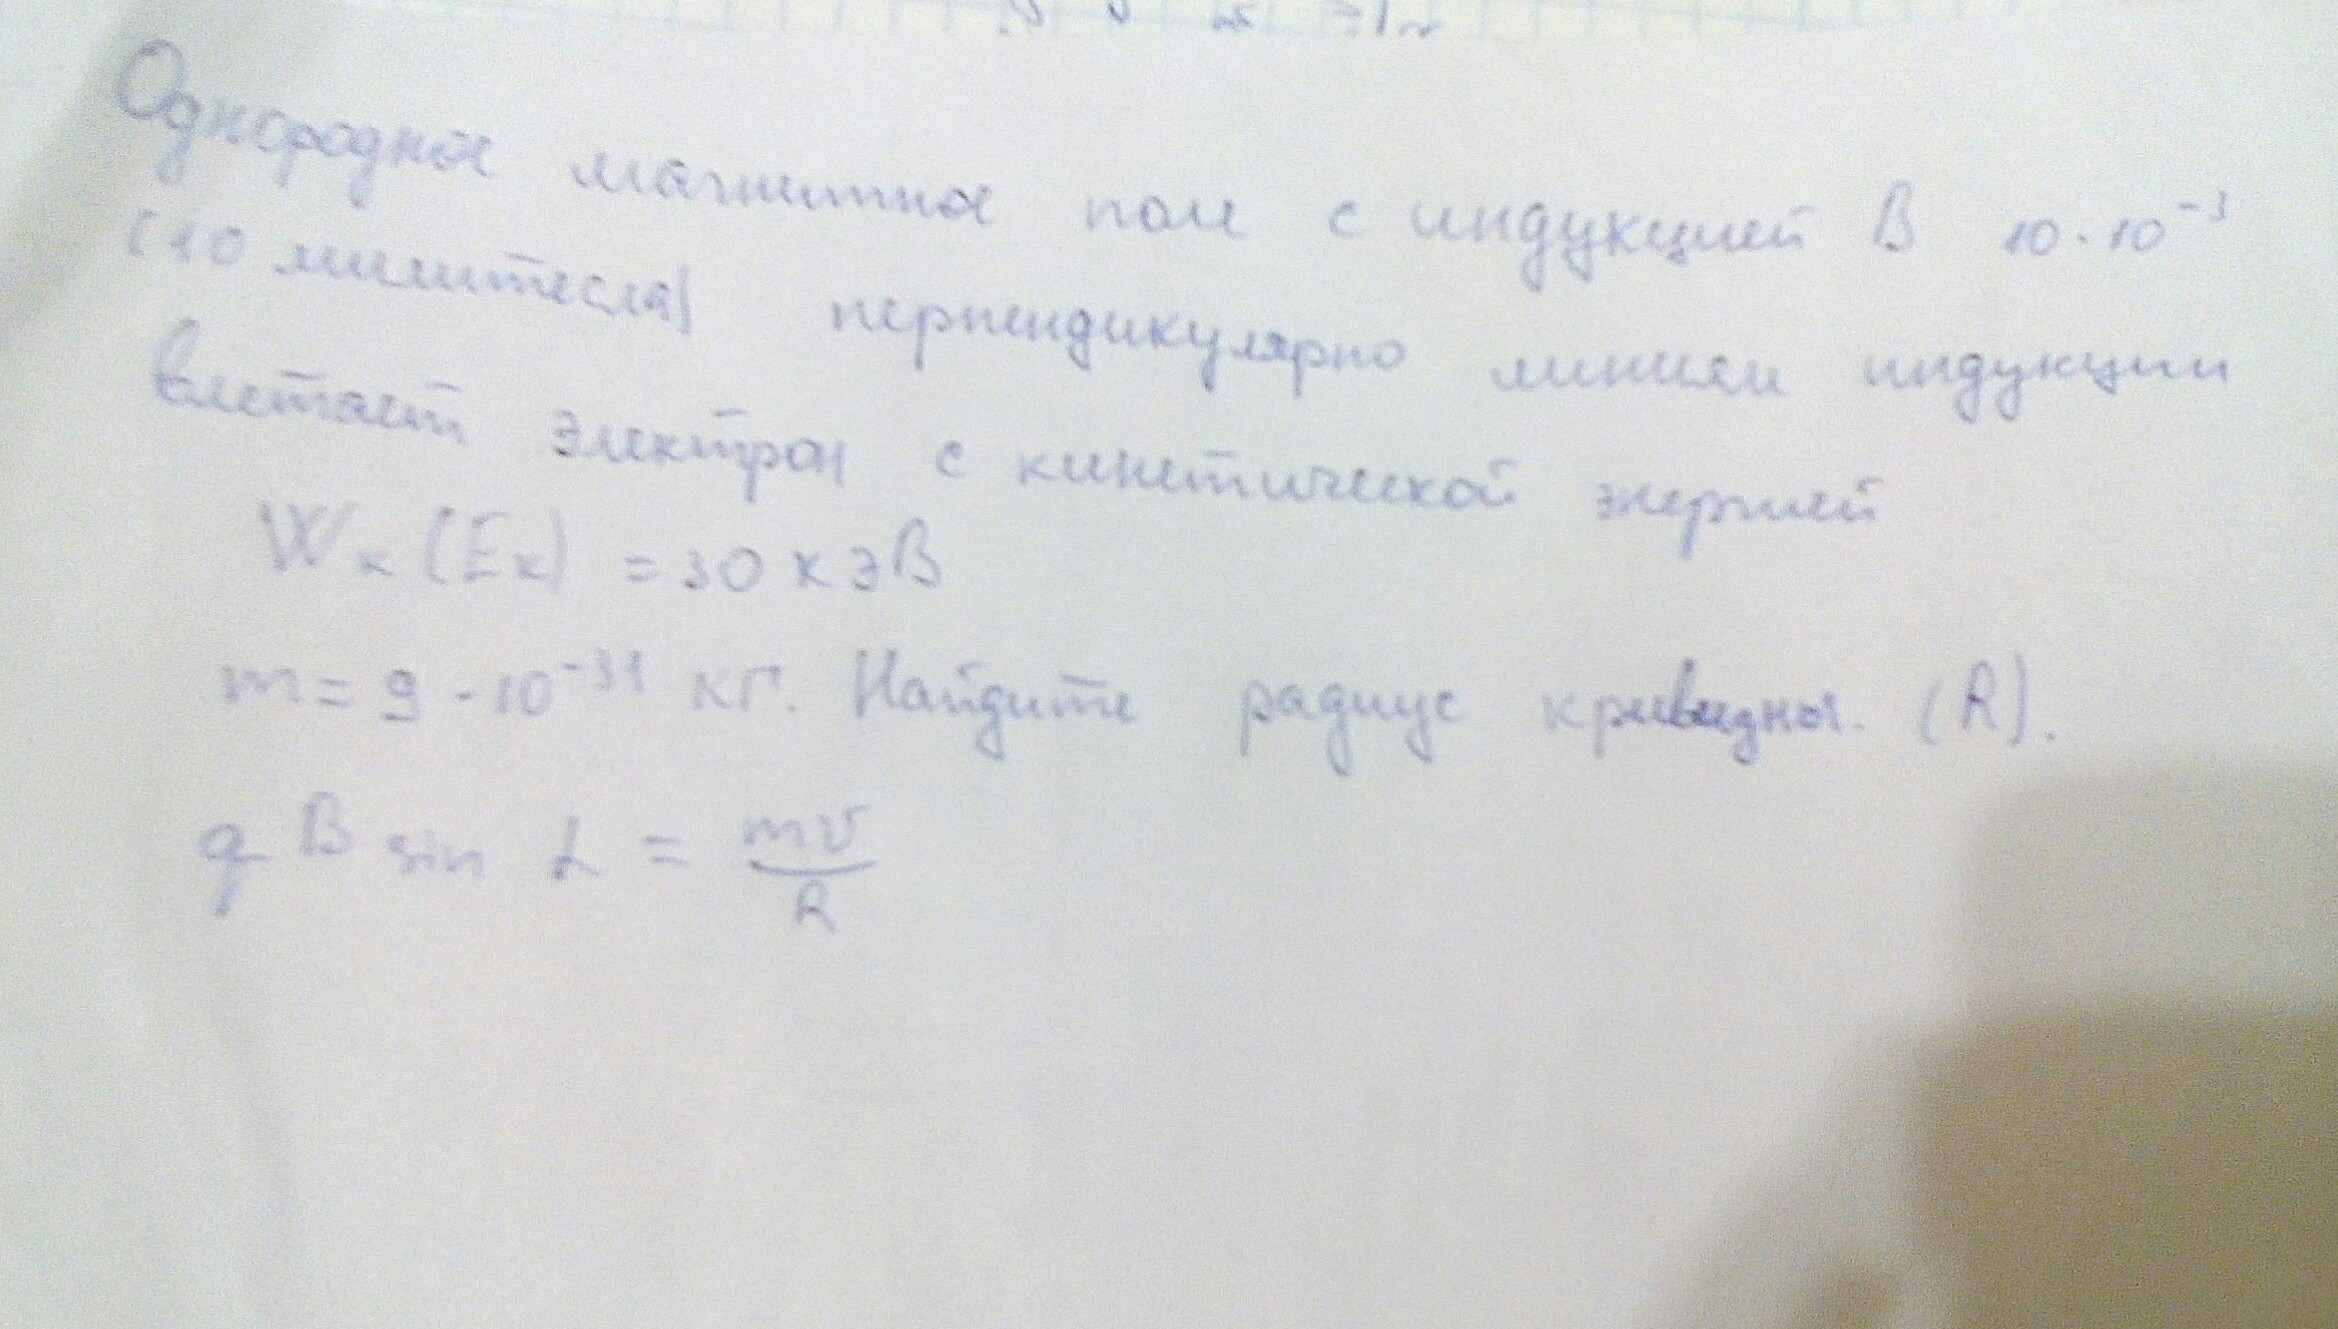 Однородное магнитное поле с индукцией B 10·10⁻³
(10 милитесла) перпендикулярно линиям индукции
влетает электрон с кинетической энергией
Wк (Eк) = 30 кэВ
m = 9 · 10⁻³¹ кг. Найдите радиус кривизны. (R).
q B sin α = mv/R